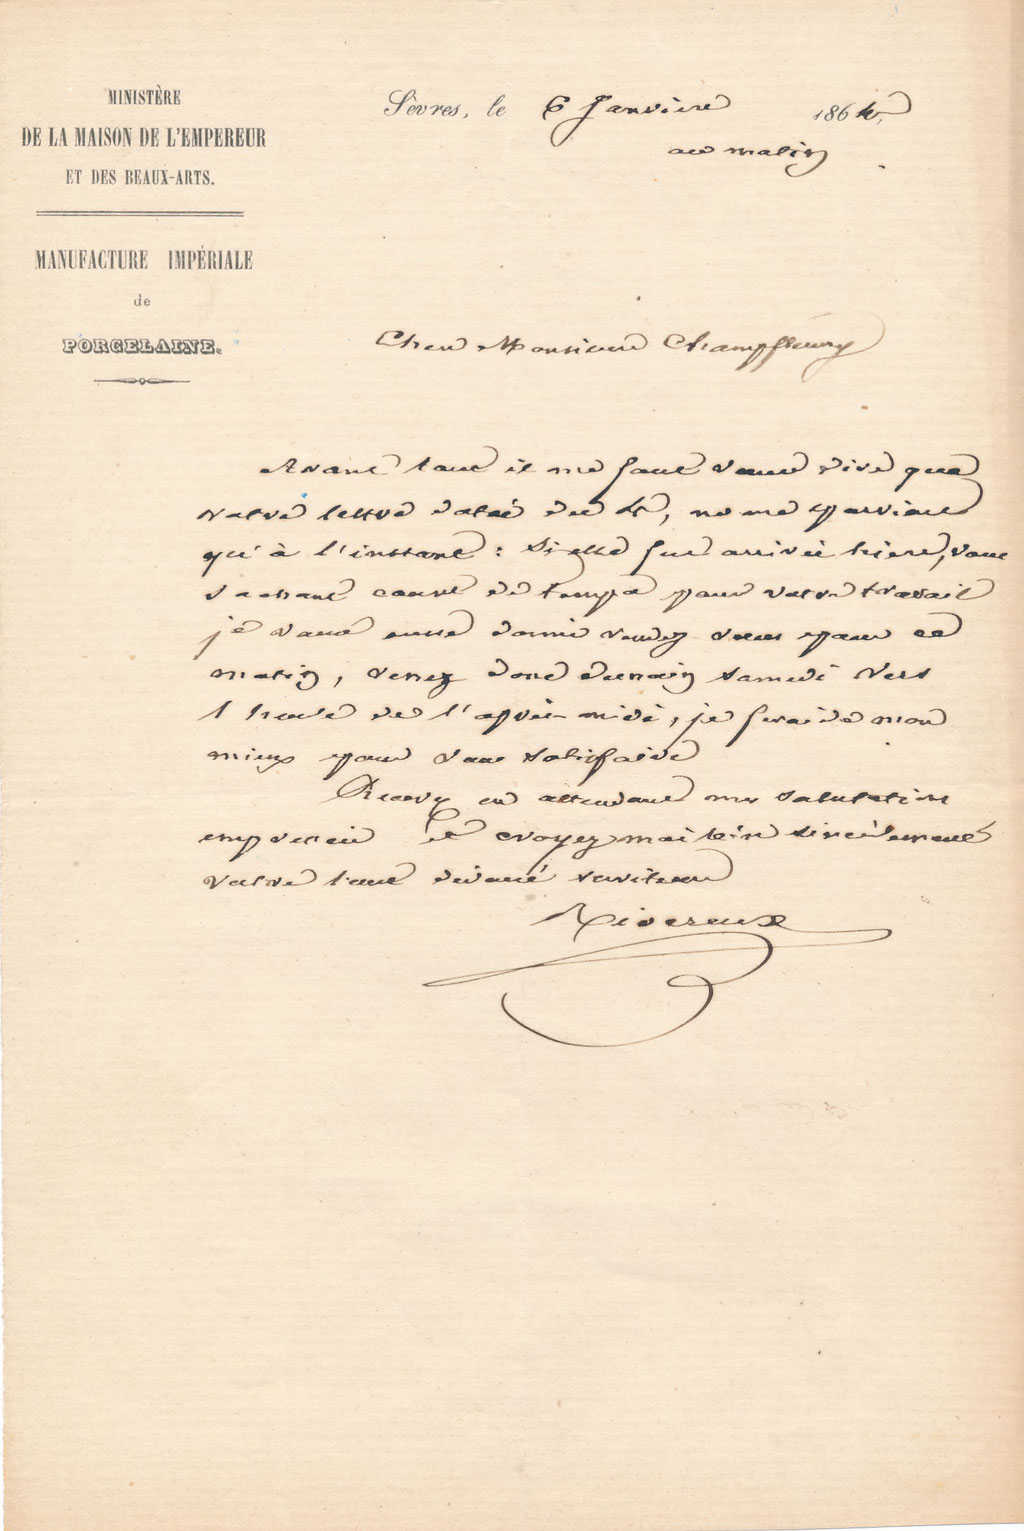 MINISTÈRE
DE LA MAISON DE L'EMPEREUR
ET DES BEAUX-ARTS.
MANUFACTURE IMPÉRIALE
de
PORCELAINE.
Sèvres, le 6 Janvier 186
au matin
Cher Monsieur Champfleury
Avant tout il me faut vous dire que
votre lettre datée du 4, ne me parvient
qu'à l'instant : Si elle fut arrivée hier, vous
sachant court de temps pour votre travail
je vous eusse donné rendez vous pour ce
matin, venez donc demain samedi vers
1 heure de l'après-midi, je ferai de mon
mieux pour vous satisfaire
Recevez en attendant mes salutations
empressées et croyez moi bien sincèrement
votre tout dévoué serviteur
Riocreux